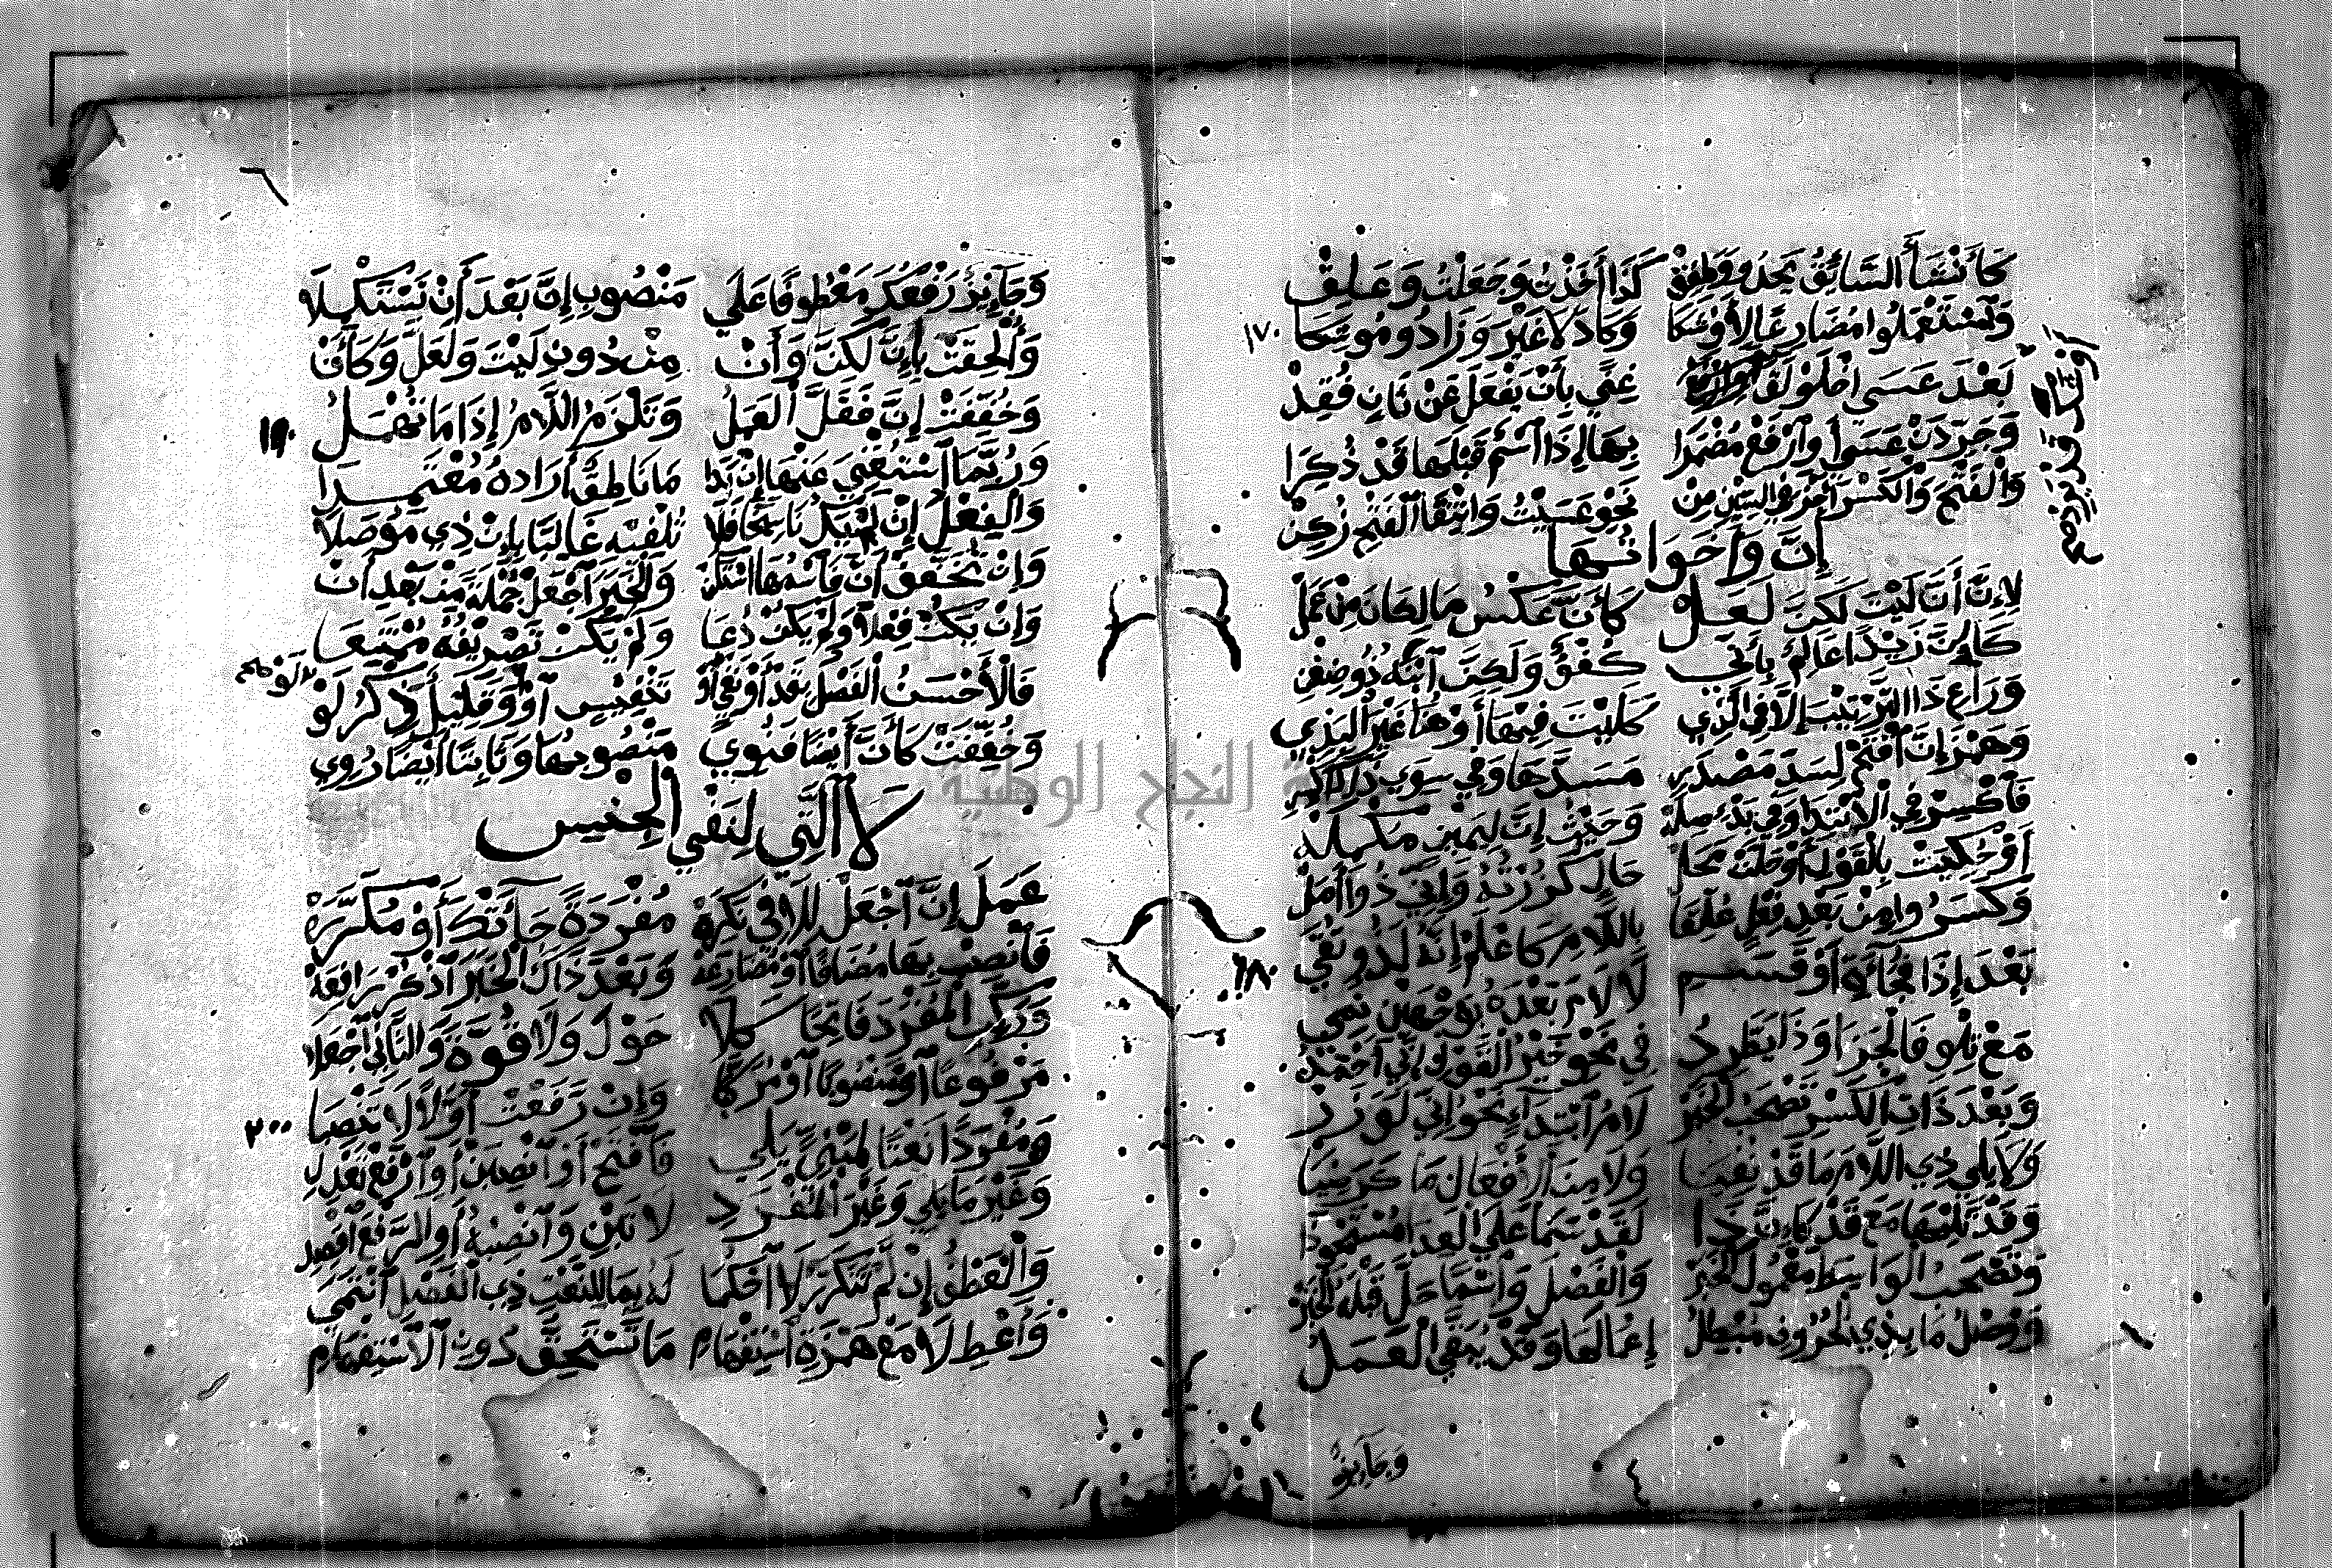 كَأَنْشَأَ السَّائِقُ يَحْدُو وَطَفِقْ كَذَا أَخَذْتُ وَجَعَلْتُ وَعَلِقْ
وَٱسْتَعْمَلُوا مُضَارِعًا لِأَوْشَكَا وَكَادَ لَا غَيْرَ وَزَادُوا مُوشِكَا
١٧٠
بَعْدَ عَسَى اخْلَوْلَقَ غِنًى بِأَنْ يَفْعَلَ عَنْ ثَانٍ فُقِدْ
وَجَرِّدَنْ عَسَى وَٱرْفَعْ مُضْمَرَا بِهَا إِذَا ٱسْمٌ قَبْلَهَا قَدْ ذُكِرَا
وَالْفَتْحَ وَالْكَسْرَ أَجِزْ فِي السِّينِ مِنْ نَحْوِ عَسَيْتُ وَانْتِقَا الْفَتْحِ زُكِنْ
إِنَّ وَأَخَوَاتُهَا
لِإِنَّ أَنَّ لَيْتَ لَكِنَّ لَعَلّْ كَأَنَّ عَكْسُ مَا لِكَانَ مِنْ عَمَلْ
كَإِنَّ زَيْدًا عَالِمٌ بِأَنِّي كُفْؤٌ وَلَكِنَّ ٱبْنَهُ ذُو ضِغْنِ
وَرَاعِ ذَا التَّرْتِيبَ إِلَّا فِي الَّذِي كَلَيْتَ فِيهَا أَوْ هُنَا غَيْرَ الْبَذِي
وَهَمْزَ إِنَّ ٱفْتَحْ لِسَدِّ مَصْدَرِ مَسَدَّهَا وَفِي سِوَى ذَاكَ ٱكْسِرِ
فَٱكْسِرْ فِي الِابْتِدَا وَفِي بَدْءِ صِلَهْ وَحَيْثُ إِنَّ لِيَمِينٍ مُكْمِلَهْ
أَوْ حُكِيَتْ بِالْقَوْلِ أَوْ حَلَّتْ مَحَلْ حَالٍ كَزُرْتُهُ وَإِنِّي ذُو أَمَلْ
وَكَسَرُوا مِنْ بَعْدِ فِعْلٍ عُلِّقَا بِاللَّامِ كَاعْلَمْ إِنَّهُ لَذُو تُقَى
بَعْدَ إِذَا فُجَاءَةٍ أَوْ قَسَمِ لَا لَامَ بَعْدَهُ بِوَجْهَيْنِ نُمِي
١٨٠
مَعْ تِلْوِ فَا الْجَزَا وَذَا يَطَّرِدُ فِي نَحْوِ خَيْرُ الْقَوْلِ إِنِّي أَحْمَدُ
وَبَعْدَ ذَاتِ الْكَسْرِ تَصْحَبُ الْخَبَرْ لَامُ ٱبْتِدَاءٍ نَحْوُ إِنِّي لَوَزَرْ
وَلَا يَلِي ذِي اللَّامَ مَا قَدْ نُفِيَا وَلَا مِنَ الْأَفْعَالِ مَا كَرَضِيَا
وَقَدْ يَلِيهَا مَعَ قَدْ كَإِنَّ ذَا لَقَدْ سَمَا عَلَى الْعِدَا مُسْتَحْوِذَا
وَتَصْحَبُ الْوَاسِطَ مَعْمُولَ الْخَبَرْ وَالْفَصْلَ وَٱسْمًا حَلَّ قَبْلَهُ الْخَبَرْ
وَوَصْلُ مَا بِذِي الْحُرُوفِ مُبْطِلُ إِعْمَالَهَا وَقَدْ يُبَقَّى الْعَمَلُ
وَجَائِزٌ
وَجَائِزٌ رَفْعُكَ مَعْطُوفًا عَلَى مَنْصُوبِ إِنَّ بَعْدَ أَنْ تَسْتَكْمِلَا
وَأُلْحِقَتْ بِإِنَّ لَكِنَّ وَأَنْ مِنْ دُونِ لَيْتَ وَلَعَلَّ وَكَأَنْ
وَخُفِّفَتْ إِنَّ فَقَلَّ الْعَمَلُ وَتَلْزَمُ اللَّامُ إِذَا مَا تُهْمَلُ
١٩٠
وَرُبَّمَا ٱسْتُغْنِيَ عَنْهَا إِنْ بَدَا مَا نَاطِقٌ أَرَادَهُ مُعْتَمِدَا
وَالْفِعْلُ إِنْ لَمْ يَكُ نَاسِخًا فَلَا تُلْفِيهِ غَالِبًا بِإِنْ ذِي مُوصَلَا
وَإِنْ تُخَفَّفْ أَنَّ فَٱسْمُهَا اسْتَكَنْ وَالْخَبَرَ ٱجْعَلْ جُمْلَةً مِنْ بَعْدِ أَنْ
وَإِنْ يَكُنْ فِعْلًا وَلَمْ يَكُنْ دُعَا وَلَمْ يَكُنْ تَصْرِيفُهُ مُمْتَنِعَا
فَالْأَحْسَنُ الْفَصْلُ بِقَدْ أَوْ نَفْيٍ أَوْ تَنْفِيسٍ ٱوْ لَوْ وَقَلِيلٌ ذِكْرُ لَوْ
وَخُفِّفَتْ كَأَنَّ أَيْضًا فَنُوِي مَنْصُوبُهَا وَثَابِتًا أَيْضًا رُوِي
لَا الَّتِي لِنَفْيِ الْجِنْسِ
عَمَلَ إِنَّ ٱجْعَلْ لِلَا فِي نَكِرَهْ مُفْرَدَةً جَاءَتْكَ أَوْ مُكَرَّرَهْ
فَٱنْصِبْ بِهَا مُضَافًا أَوْ مُضَارِعَهْ وَبَعْدَ ذَاكَ الْخَبَرَ ٱذْكُرْ رَافِعَهْ
وَرَكِّبِ الْمُفْرَدَ فَاتِحًا كَلَا حَوْلَ وَلَا قُوَّةَ وَالثَّانِي ٱجْعَلَا
مَرْفُوعًا أَوْ مَنْصُوبًا أَوْ مُرَكَّبَا وَإِنْ رَفَعْتَ أَوَّلًا لَا تَنْصِبَا
٢٠٠
وَمُفْرَدًا نَعْتًا لِمَبْنِيٍّ يَلِي فَٱفْتَحْ أَوِ ٱنْصِبَنْ أَوِ ٱرْفَعْ تَعْدِلِ
وَغَيْرَ مَا يَلِي وَغَيْرَ الْمُفْرَدِ لَا تَبْنِ وَٱنْصِبْهُ أَوِ الرَّفْعَ ٱقْصِدِ
وَالْعَطْفُ إِنْ لَمْ تَتَكَرَّرْ لَا ٱحْكُمَا لَهُ بِمَا لِلنَّعْتِ ذِي الْفَصْلِ ٱنْتَمَى
وَأَعْطِ لَا مَعْ هَمْزَةِ ٱسْتِفْهَامِ مَا تَسْتَحِقُّ دُونَ الِاسْتِفْهَامِ